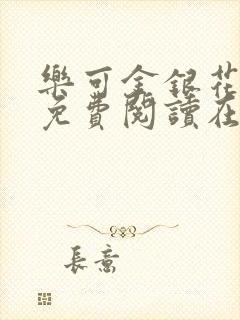 樂可金銀花
免費閱讀在
長意